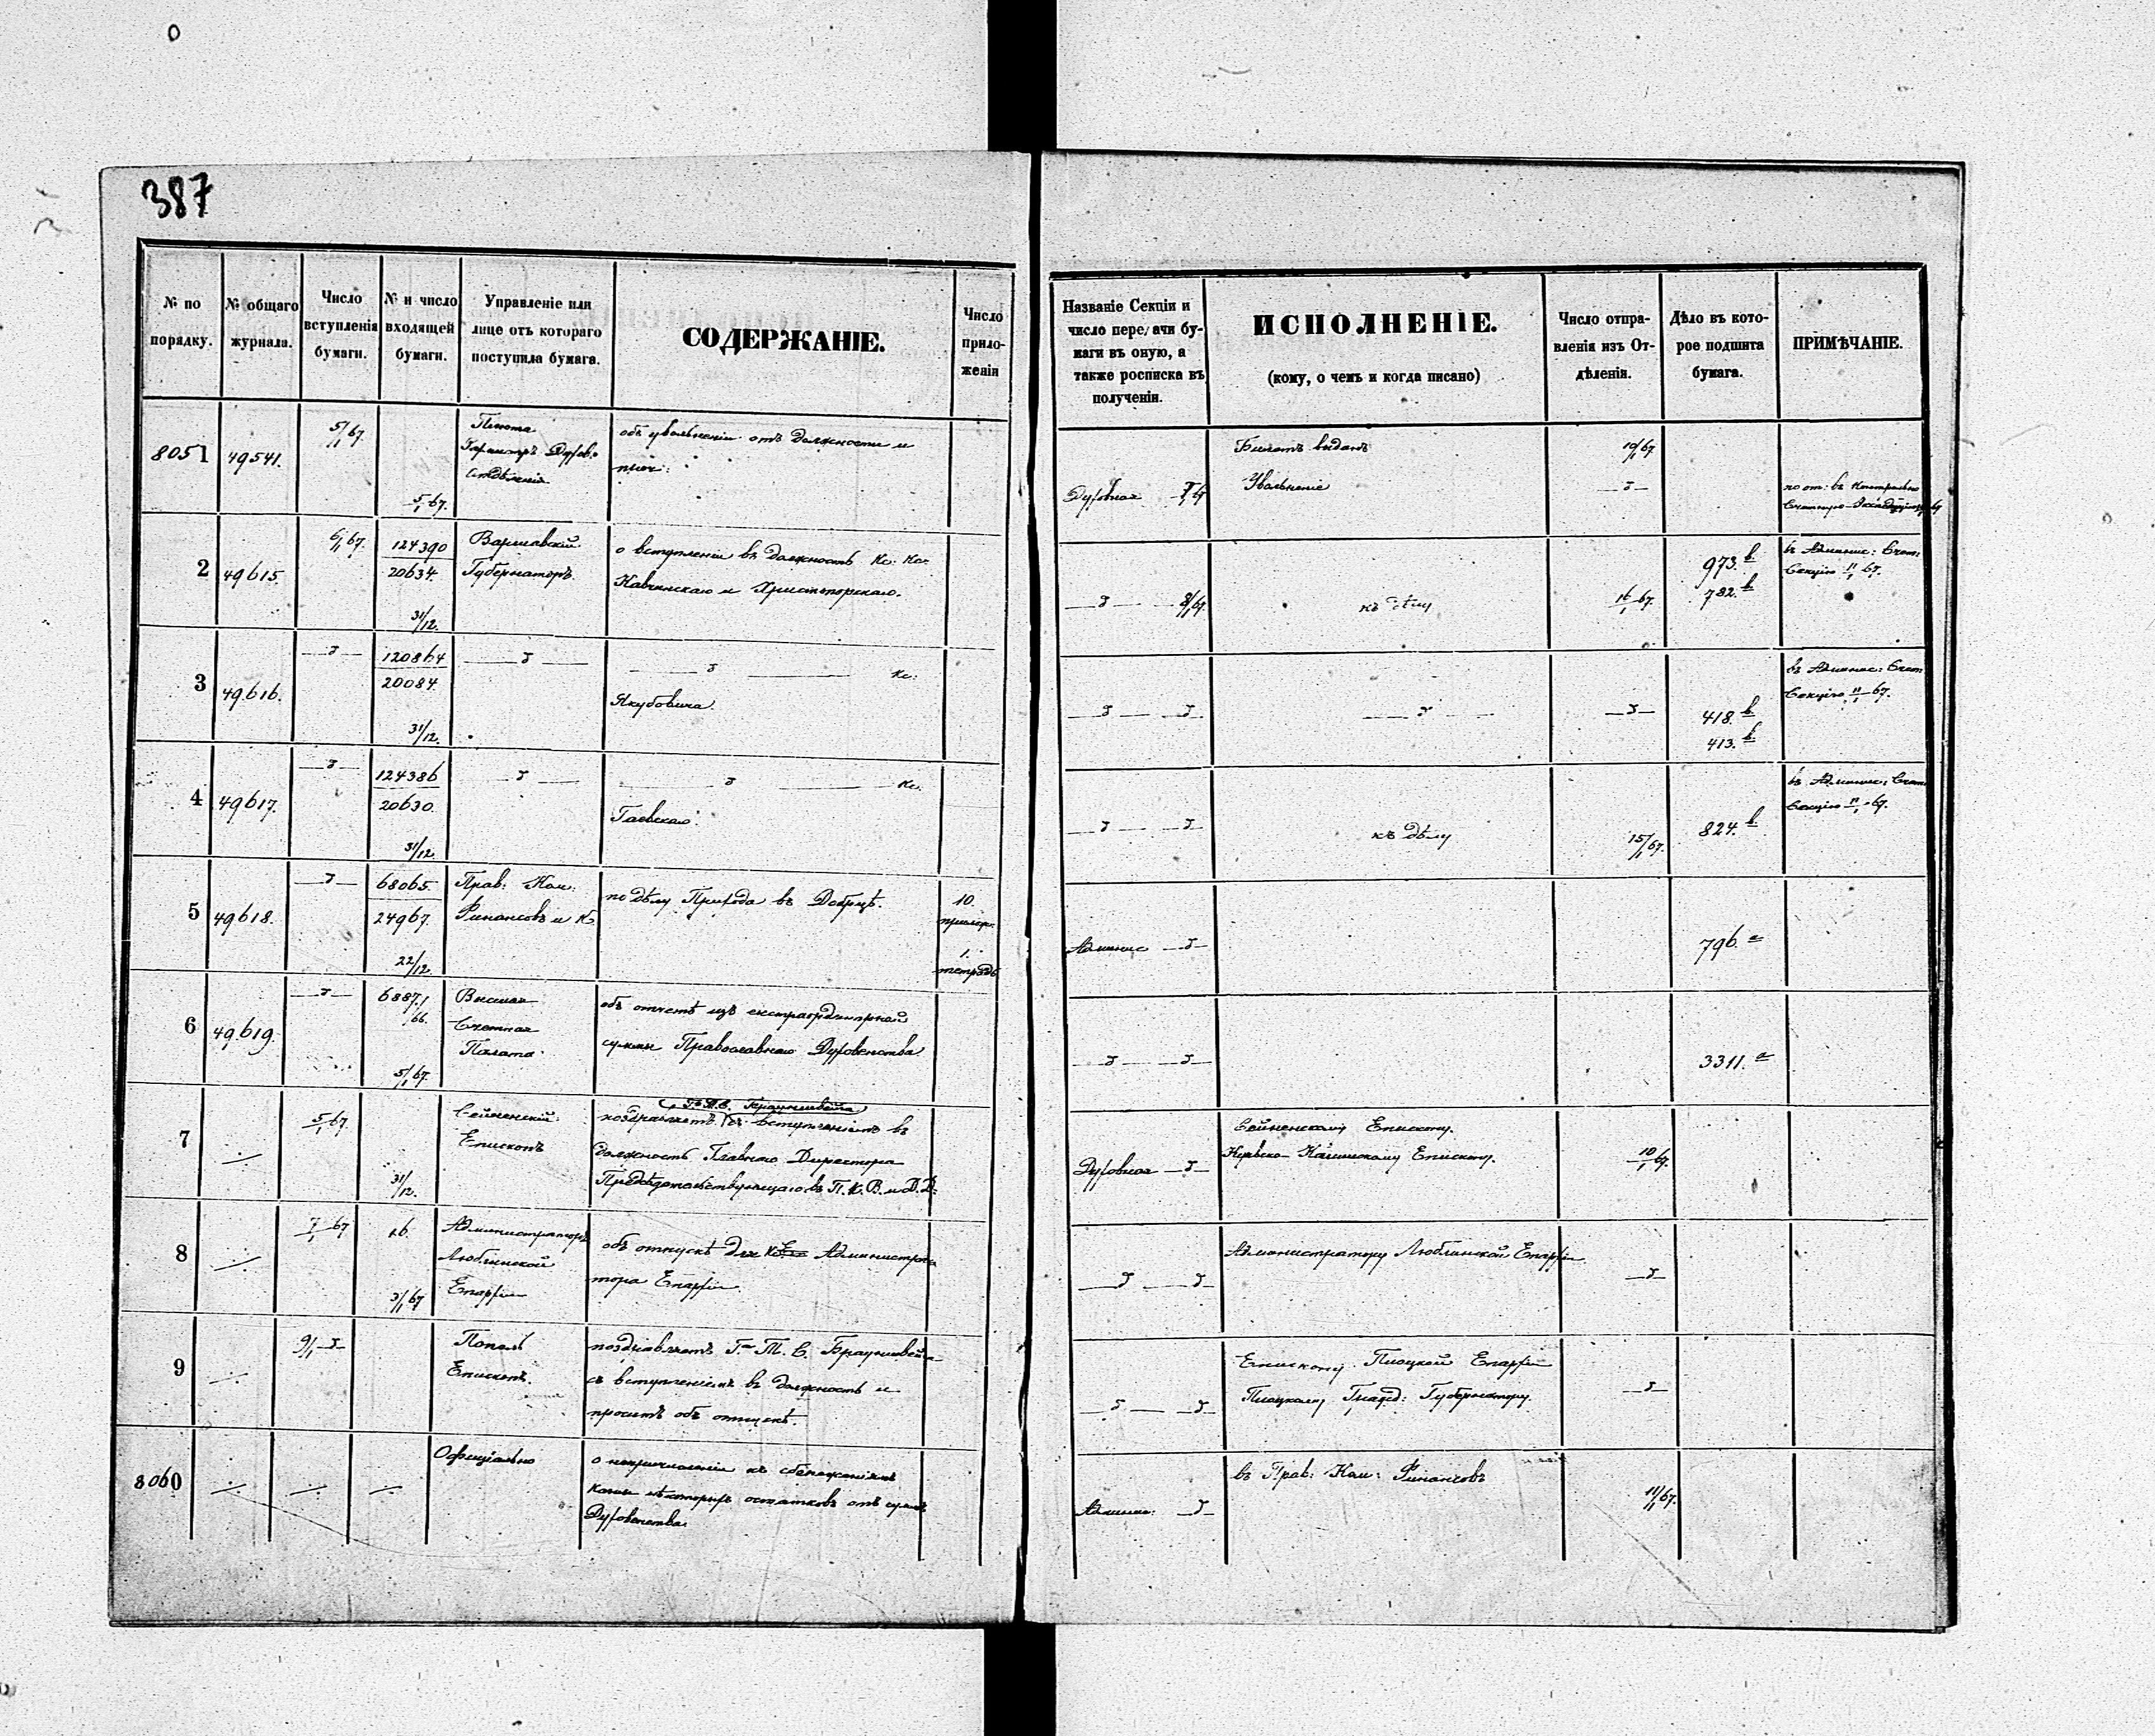 387
№ по порядку.
№ общаго журнала.
Число вступленія бумаги.
№ и число входящей бумаги.
Управленіе или лице отъ котораго поступила бумага.
СОДЕРЖАНІЕ.
Число приложенія
Названіе Секціи и число передачи бумаги въ оную, а также росписка въ полученіи.
ИСПОЛНЕНІЕ.
(кому, о чемъ и когда писано)
Число отправленія изъ Отдѣленія.
Дѣло въ которое подшита бумага.
ПРИМѢЧАНІЕ.
8051
49541.
5/1 67.
5/1 67.
объ увольненіи отъ должности и
Духовная 7/1 67
Билетъ выданъ
Увольненіе
10/1 67
2
49615.
6/1 67.
124390
20634.
31/12.
Варшавскій
Губернаторъ.
о вступленіи въ должность Кс: Кс:
къ дѣлу
16/1 67.
973. в
782. в
въ Админис: Счет:
Секцію 11/1 67.
3
49616.
120864
20084.
31/12.
Кс:
Якубовича.
418. в
413. в
въ Админис: Счет:
Секцію 11/1 67.
4
49617.
124386
20630.
31/12.
Кс:
Гаевскаго.
къ дѣлу
15/1 67.
824. в
въ Админис: Счет:
Секцію 11/1 67.
5
49618.
68065.
24967.
22/12.
Прав: Ком:
Финансовъ и К
по дѣлу Прихода въ Добрцѣ.
10.
прилож.
1.
тетрадь
Админис
796. а
6
49619.
6887./
66.
5/1 67.
Высшая
Счетная
Палата
объ отчетѣ изъ екстраординарной
суммы Православнаго Духовенства
3311. а
7
5/1 67.
31/12.
Сейненскій
Епископъ
поздравляетъ Г. Т. С. Брауншвейга съ вступленіемъ въ
должность Главнаго Директора
Предсѣдательствующаго въ П. К. В. и Д. Д:
Духовная
Сейненскому Епископу.
Епископу.
10/1 67.
8
7/1 67
16.
3/1 67
Администраторъ
Люблинской
Епархіи
объ отпускѣ для Администра
тора Епархіи
Администратору Люблинской Епархіи
9
9/1
Попель
Епископъ.
поздравляетъ Г. Т. С. Брауншвейга
съ вступленіемъ въ должность и
проситъ объ отпускѣ.
Епископу Плоцкой Епархіи
Плоцкому Гражд: Губернатору.
8060
Офиціально
о непричисленіи къ сбереженіямъ
казны нѣкоторыхъ остатковъ отъ суммъ
Духовенства.
Админи:
въ Прав: Ком: Финансовъ
11/1 67.